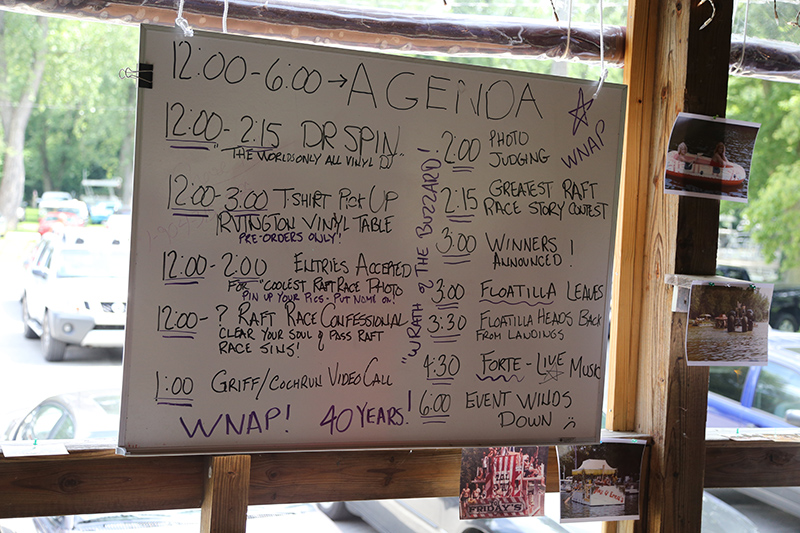 12:00-6:00 → AGENDA
12:00 - 2:15 DR SPIN
"THE WORLDS ONLY ALL VINYL DJ"
12:00 - 3:00 T-SHIRT PICK UP
IRVINGTON VINYL TABLE
PRE-ORDERS ONLY!
12:00 - 2:00 ENTRIES ACCEPTED
FOR "COOLEST RAFT RACE PHOTO
PIN UP YOUR PICS - PUT NAME ON!
12:00 - ? RAFT RACE CONFESSIONAL
CLEAR YOUR SOUL & PASS RAFT
RACE SINS!
1:00 GRIFF/COCHRUN VIDEO CALL
WNAP! 40 YEARS!
"WRATH OF THE BUZZARD!
WNAP
2:00 PHOTO
JUDGING
2:15 GREATEST RAFT
RACE STORY CONTEST
3:00 WINNERS
ANNOUNCED!
3:00 FLOATILLA LEAVES
3:30 FLOATILLA HEADS BACK
FROM LANDINGS
4:30 FORTE - LIVE MUSIC
6:00 EVENT WINDS
DOWN :(
FRIDAY'S